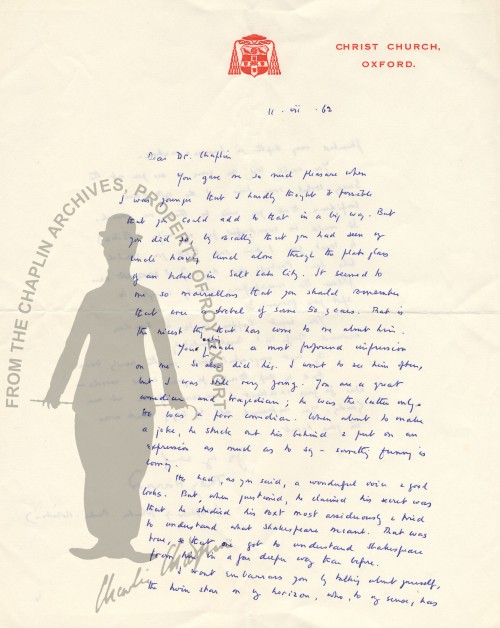 CHRIST CHURCH,
OXFORD.
11 . vii . 62
Dear Dr. Chaplin
You gave me so much pleasure when
I was younger that I hardly thought it possible
that you could add to that in a big way. But
you did so, by recalling that you had seen my
uncle having lunch alone through the plate glass
of an hotel in Salt Lake City. It seemed to
me so marvellous that you should remember
that over a total of some 50 years. That is
the nicest thing that has come to me about him.
Your made a most profound impression
on me. So also did his. I went to see him often,
but I was still very young. You are a great
comedian and tragedian; he was the latter only.
He was a poor comedian. When about to make
a joke, he stuck out his behind & put on an
expression as much as to say - something funny is
coming.
He had, as you said, a wonderful voice & good
looks. But, when questioned, he claimed his secret was
that he studied his text most assiduously & tried
to understand what Shakespeare meant. That was
true, so that one got to understand Shakespeare
from him in a far deeper way than before.
I won't embarrass you by talking about yourself,
the twin star on my horizon, who, to my sense, has
FROM THE CHAPLIN ARCHIVES, PROPERTY OF ROY EXPORT
Charlie Chaplin